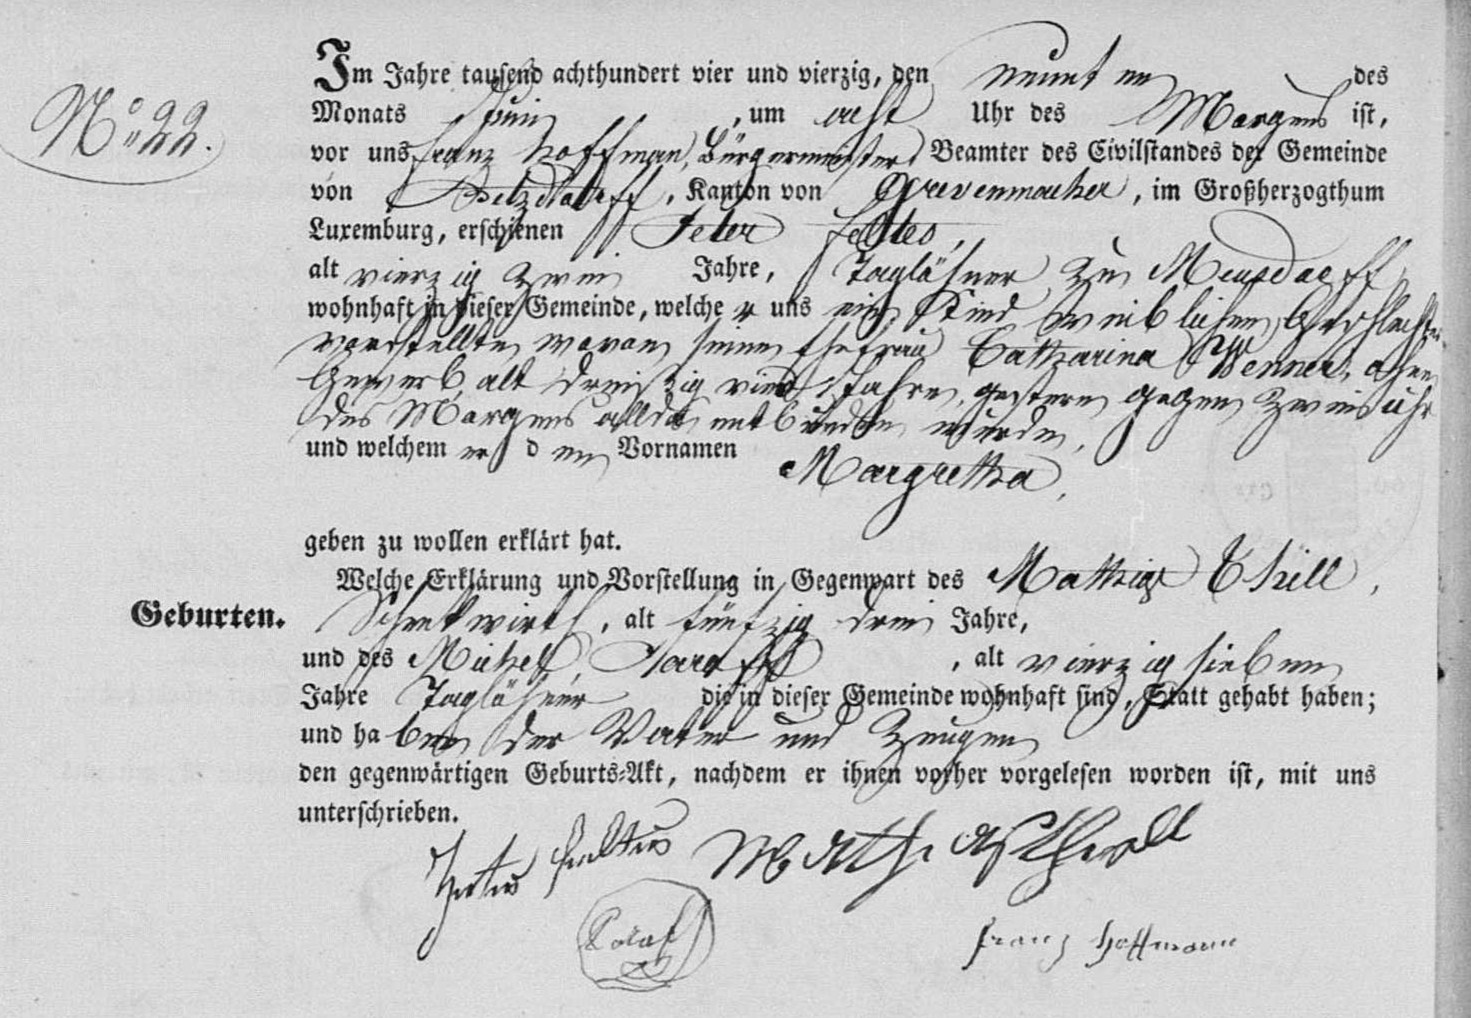 Nº 22.
Im Jahre tausend achthundert vier und vierzig, den neunten des
Monats Juni, um acht Uhr des Morgens ist,
vor uns Franz Hoffman, Bürgermeister, Beamter des Civilstandes der Gemeinde
von Betzdorff, Kanton von Grevenmacher, im Großherzogthum
Luxemburg, erschienen Peter Feltes,
alt vierzig zwei Jahre, Taglöhner zu Mensdorff
wohnhaft in dieser Gemeinde, welcher uns ein Kind weiblichen Geschlechtes
vorstellte, wovon seine Ehefrau Catharina Wenner, ohne
Gewerb, alt dreißig vier Jahre, gestern gegen zwei Uhr
des Morgens allda entbunden wurde,
und welchem er den Vornamen
Margretha,
geben zu wollen erklärt hat.
Welche Erklärung und Vorstellung in Gegenwart des Mathias Thill,
Geburten.
Schenkwirth, alt fünfzig drei Jahre,
und des Michel, alt vierzig sieben
Jahre Taglöhner die in dieser Gemeinde wohnhaft sind, Statt gehabt haben;
und haben der Vater und Zeugen
den gegenwärtigen Geburts-Akt, nachdem er ihnen vorher vorgelesen worden ist, mit uns
unterschrieben.
Peter Feltes
Franz Hoffmann